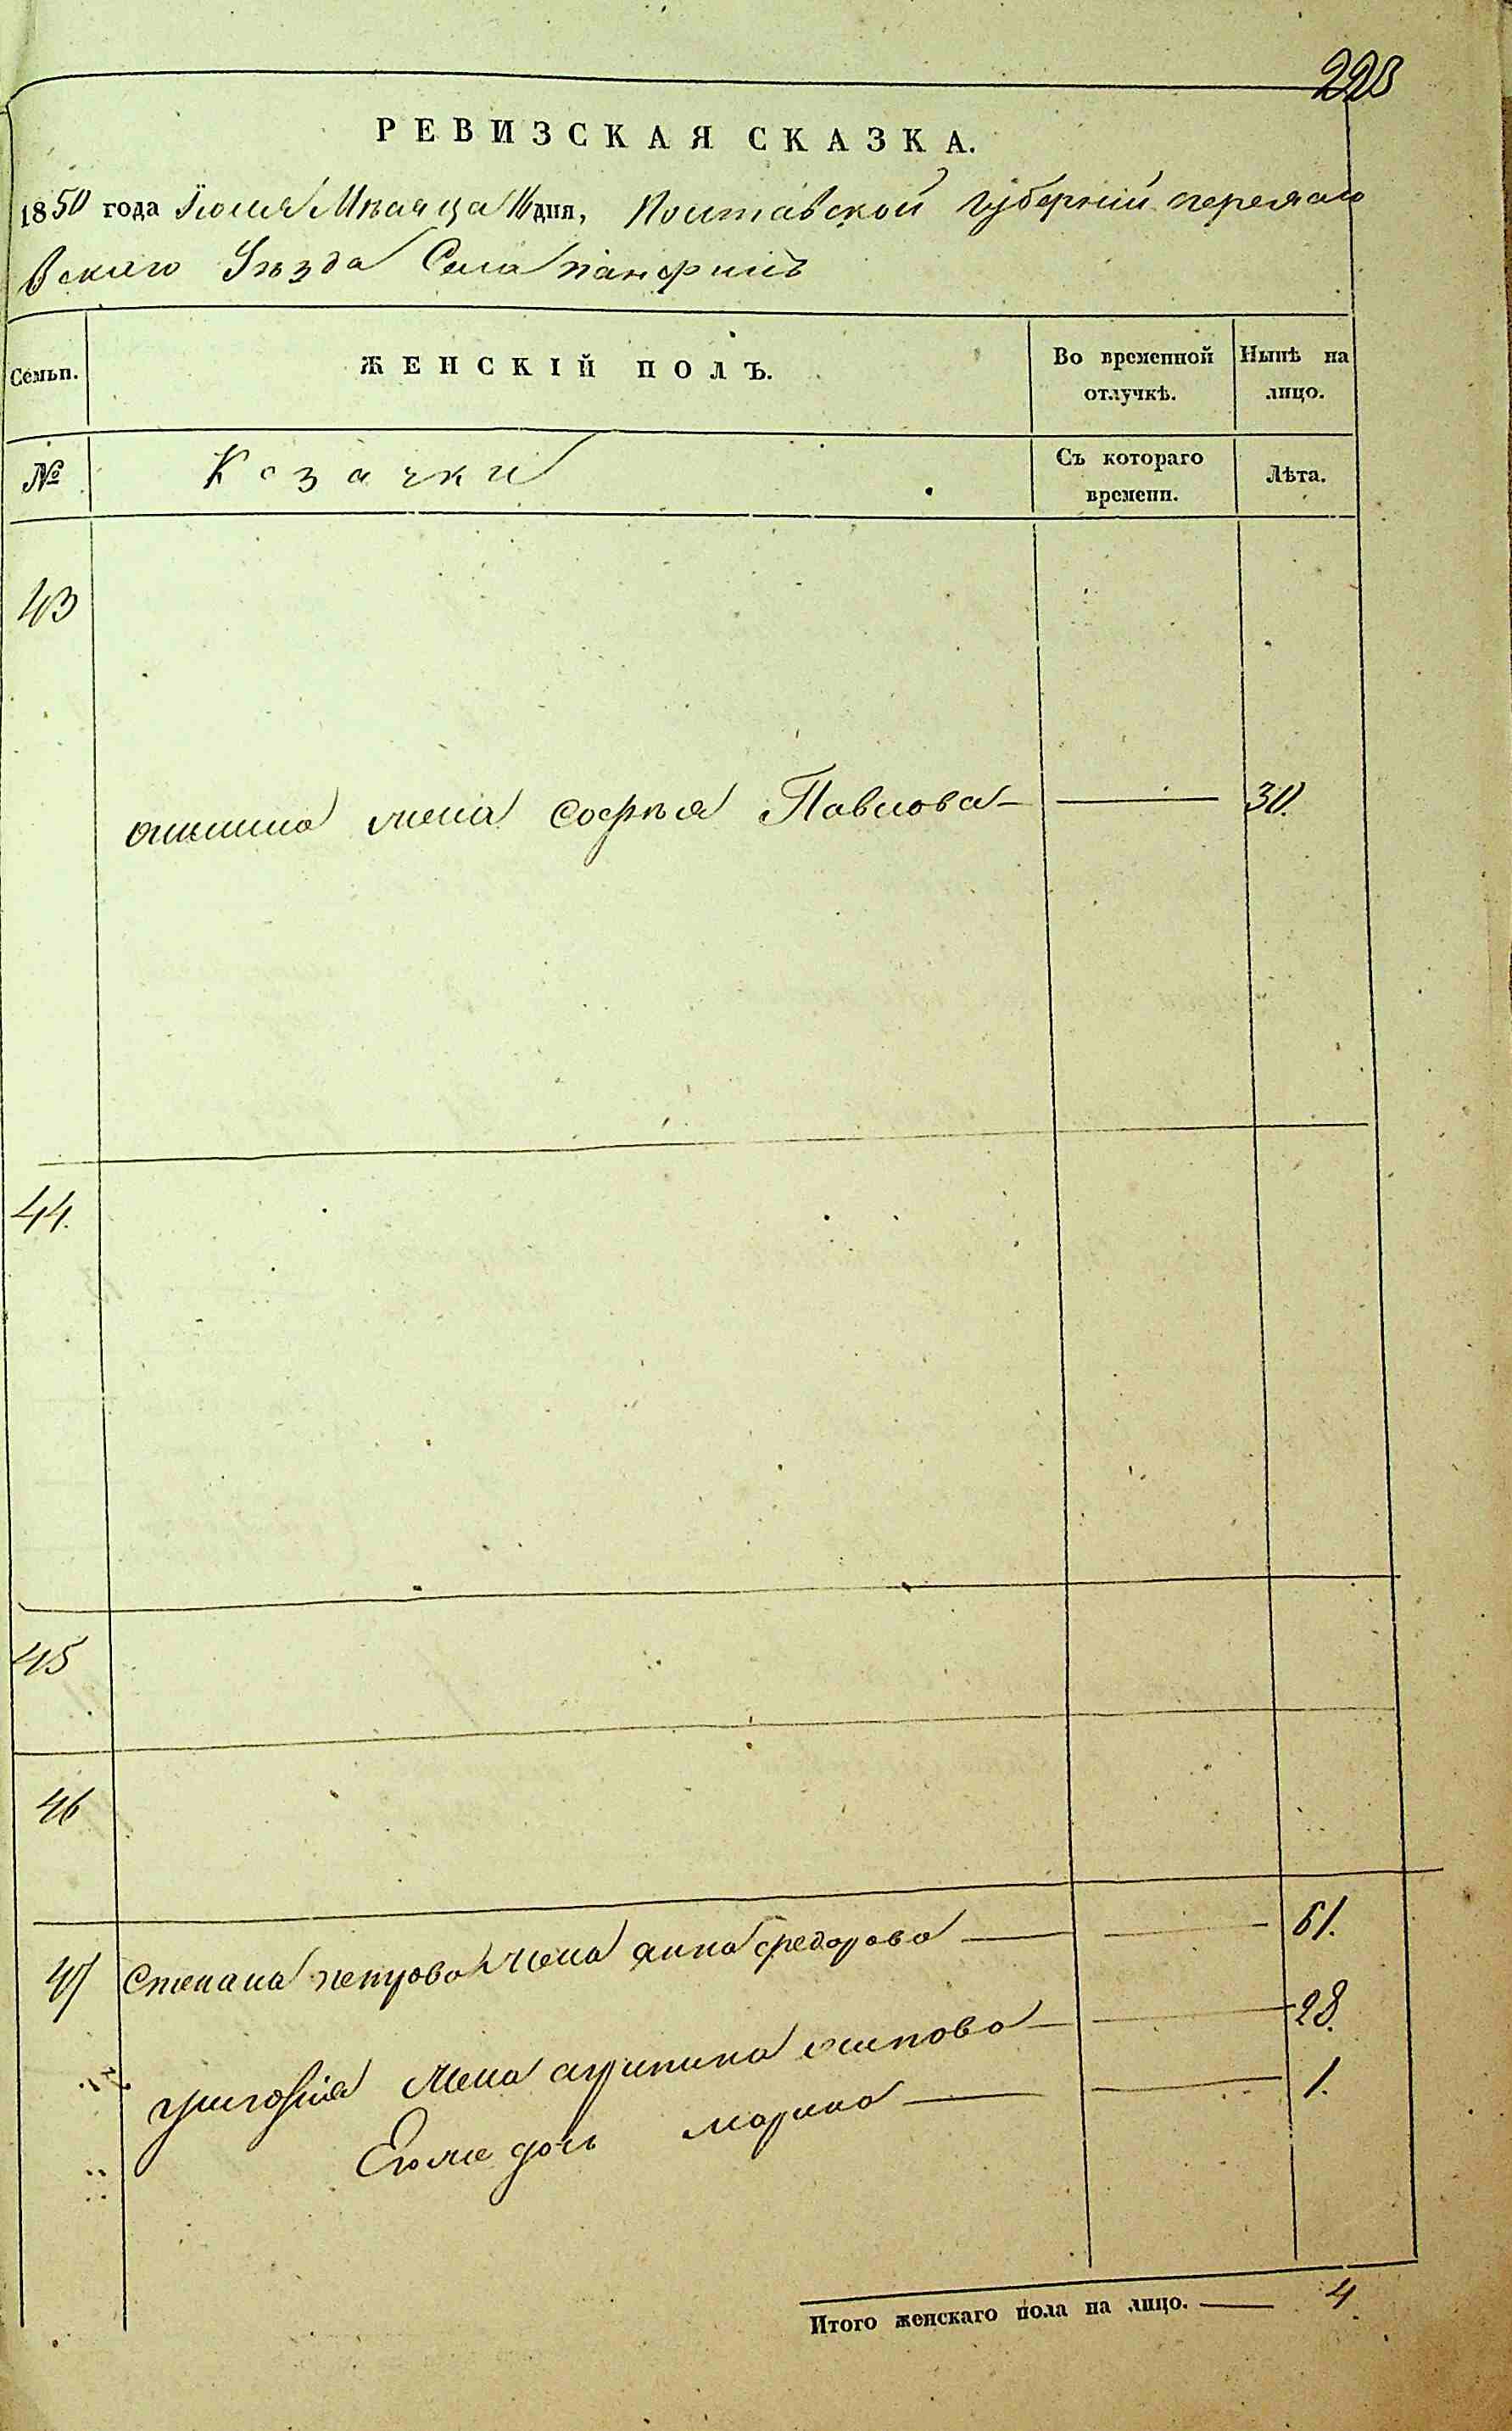 223
РЕВИЗСКАЯ СКАЗКА.
1850 года Іюля Мѣсяца дня, Полтавской Губерніи переясло
вскаго Уѣзда Села панфилъ
Семьи.
ЖЕНСКІЙ ПОЛЪ.
Во временной отлучкѣ.
Нынѣ на лицо.
№
Козачки
Съ котораго времени.
Лѣта.
43
жена Софья Павлова — 30.
44.
45
46
47 Степана петрова жена анна федорова — 61.
григорія жена агрипина осипова — 28.
Егоже дочь марина — 1.
Итого женскаго пола на лицо. — 4